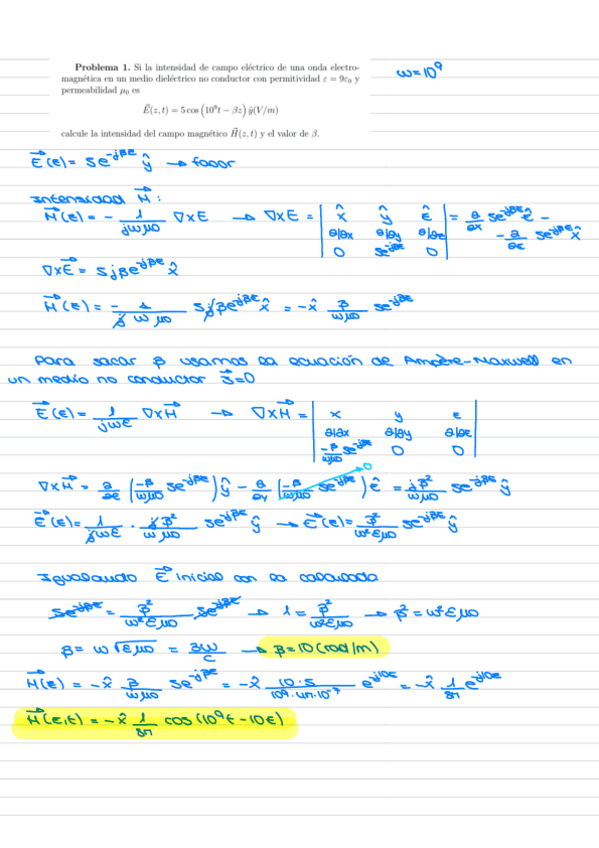 Problema 1. Si la intensidad de campo eléctrico de una onda electro-
magnética en un medio dieléctrico no conductor con permitividad ε = 9ε₀ y
permeabilidad μ₀ es
E⃗(z, t) = 5 cos (10⁹t − βz) ŷ(V/m)
calcule la intensidad del campo magnético H⃗(z, t) y el valor de β.
ω=10⁹
E⃗(z) = 5e^-jβz ŷ → fasor
Intensidad H⃗:
H⃗(z) = - 1/jωμ0 ∇xE → ∇xE = | x̂ ŷ ẑ | = ∂/∂x 5e^-jβz ẑ -
| ∂/∂x ∂/∂y ∂/∂z | - ∂/∂z 5e^-jβz x̂
| 0 5e^-jβz 0 |
∇xE⃗ = 5jβe^-jβz x̂
H⃗(z) = -1/jωμ0 5jβe^-jβz x̂ = -x̂ β/ωμ0 5e^-jβz
Para sacar β usamos la ecuación de Ampère-Maxwell en
un medio no conductor J⃗=0
E⃗(z) = 1/jωε ∇xH⃗ → ∇xH⃗ = | x y z |
| ∂/∂x ∂/∂y ∂/∂z |
| -β/ωμ0 5e^-jβz 0 0 |
0
∇xH⃗ = ∂/∂z (-β/ωμ0 5e^-jβz) ŷ - ∂/∂y (-β/ωμ0 5e^-jβz) ẑ = jβ²/ωμ0 5e^-jβz ŷ
E⃗(z) = 1/jωε · jβ²/ωμ0 5e^-jβz ŷ → E⃗(z) = β²/ω²εμ0 5e^-jβz ŷ
Igualando E⃗ inicial con la calculada
5e^-jβz = β²/ω²εμ0 5e^-jβz → 1 = β²/ω²εμ0 → β² = ω²εμ0
β = ω√εμ0 = 3ω/c → β=10 (rad/m)
H⃗(z) = -x̂ β/ωμ0 5e^-jβz = -x̂ 10·5/10⁹·4π·10⁻⁷ e^-j10z = -x̂ 1/8π e^-j10z
H⃗(z,t) = -x̂ 1/8π cos (10⁹t - 10z)